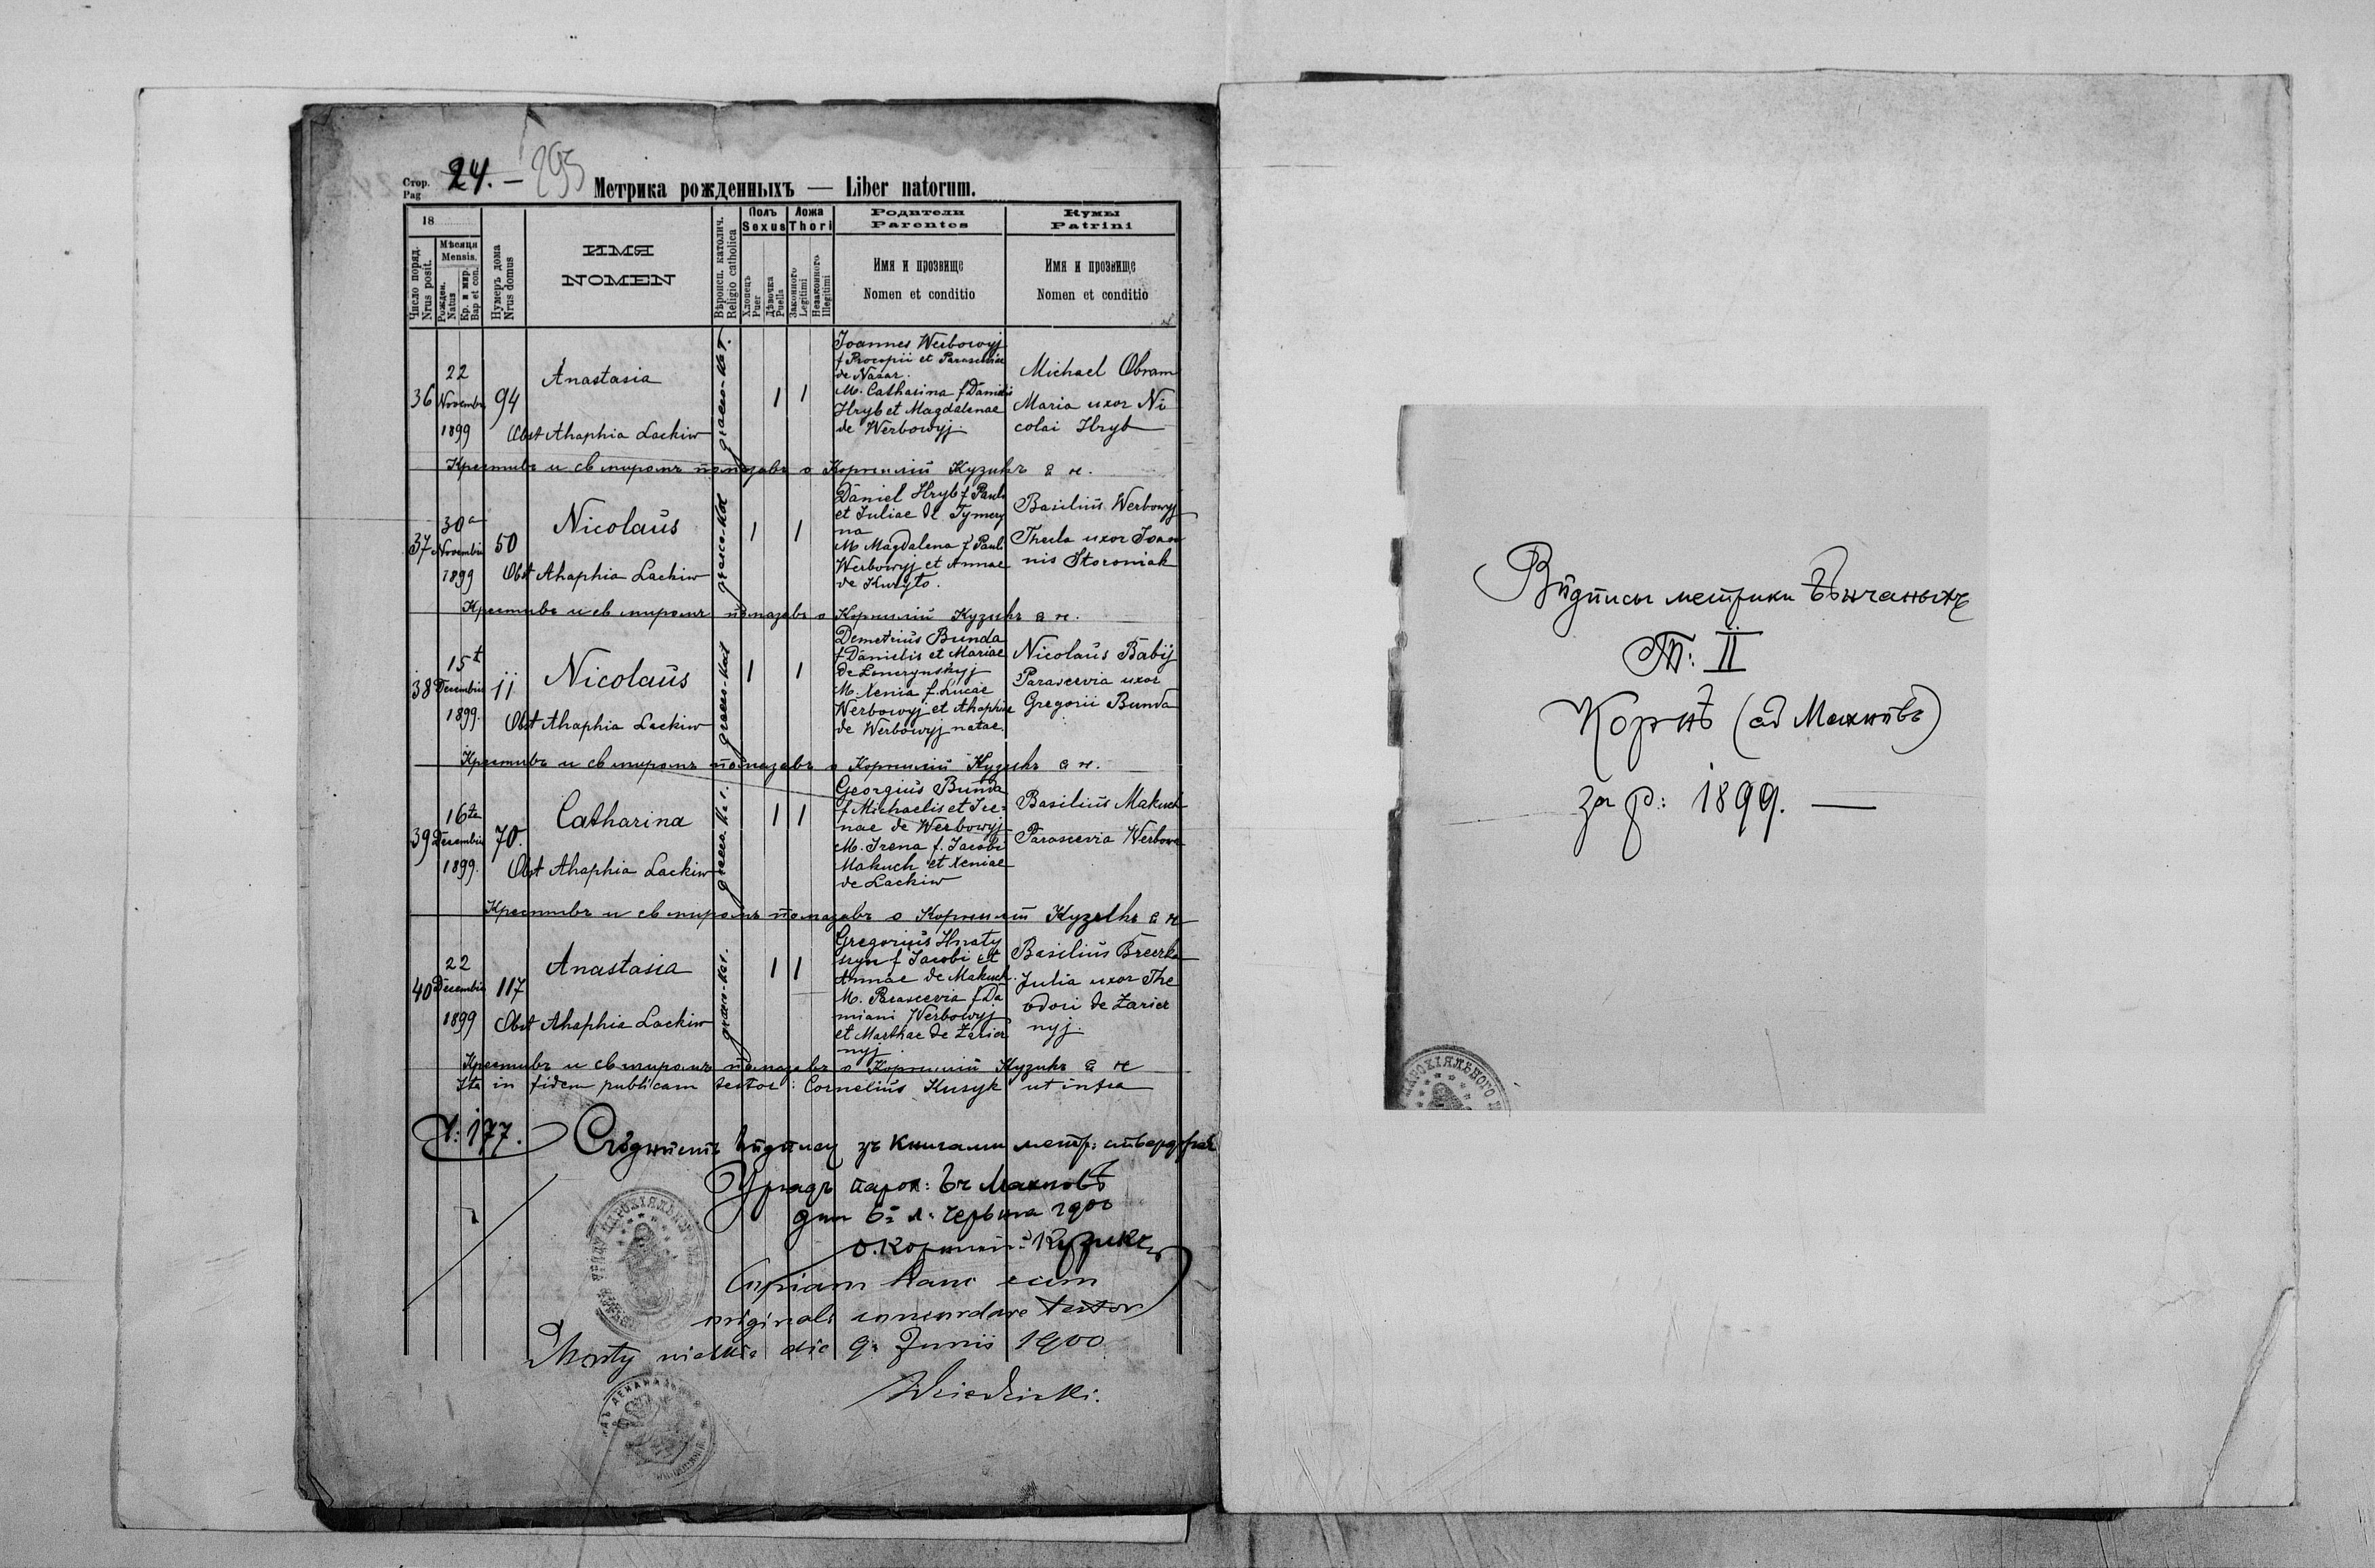 Стор.
Pag
24. — 295
Метрика рожденныхъ — Liber natorum.
18
Число поряд.
Nrus posit.
Мѣсяця
Mensis.
Рожден.
Natus
Кр. и мир.
Bap et con.
Нумеръ дома
Nrus domus
ИМЯ
NOMEN
Вѣроисп. католич.
Religio catholica
Полъ
Sexus
Хлопецъ
Puer
Дѣвочка
Puella
Ложа
Thori
Законного
Legitimi
Незаконного
Illegitimi
Родители
Parentes
Имя и прозвище
Nomen et conditio
Кумы
Patrini
Имя и прозвище
Nomen et conditio
36
22
Novembr
1899
94
Anastasia
Obst Ahaphia Lackiw
graeco-kat.
1 1
Joannes Werbowyj
f Procopii et Parasceviae
de Nazar.
M. Catharina f Danielis
Hryb et Magdalenae
de Werbowyj.
Michael Obram
Maria uxor Ni
colai Hryb
Крестивъ и св мѵромъ помазавъ о Корнилій Кузикъ
37
30a
Novembris
1899
50
Nicolaüs
Obst Ahaphia Lackiw
graeco-kat
1 1
Daniel Hryb f Pauli
et Juliae de Tymery
na
M Magdalena f Pauli
Werbowyj et Annae
de Kuryto.
Basiliüs Werbowyj
Thecla uxor Joan
nis Storoniak
Крестивъ и св мѵромъ помазавъ о Корнилій Кузикъ
38
15t
Decembris
1899.
11
Nicolaüs
Obst Ahaphia Lackiw
graeco-kat
1 1
Demetriüs Bunda
f Danielis et Mariae
M. Xenia f. Lucae
Werbowyj et Ahaphiae
de Werbowyj natae.
Nicolaüs Babij
Parascevia uxor
Gregorii Bunda
Крестивъ и св мѵромъ помазавъ о Корнилій Кузикъ
39
16ta
Decembris
1899.
70.
Catharina
Obst Ahaphia Lackiw
graeco kat.
1 1
Georgiüs Bunda
f Michaelis et Ire=
nae de Werbowyj
M. Irena f. Jacobi
Makuch et Xeniae
de Lackiw
Basiliüs Makuch
Parascevia Werbowa
Крестивъ и св мѵромъ помазавъ о Корнилій Кузикъ
40
22
Decembris
1899
117
Anastasia
Obst Ahaphia Lackiw
graeco-kat.
1 1
Gregoriüs Hnaty
szyn f Jacobi et
Annae de Makuch
M. Parascevia f Da
miani Werbowyj
et Marthae de Zaricz
nyj.
Basiliüs Breczka
Julia uxor The
odori de Zaricz
nyj.
Крестивъ и св мѵромъ помазавъ о Корнилій Кузикъ
Ita in fidem publicam testor: Cornelius Kusyk ut infra
Ч: 177.
зъ книгами метр:
Урядъ парох: въ Махновѣ
дня 6 м. Червня 1900
о. Корнилій Кузикъ
Copiam hanc cum
originali concordare testor
Mosty wielkie die 9. Junii 1900
Вôдписы метрики вѣнчаныхъ
Т: II
Корнѣ (ad Махнôвъ)
за р: 1899. —